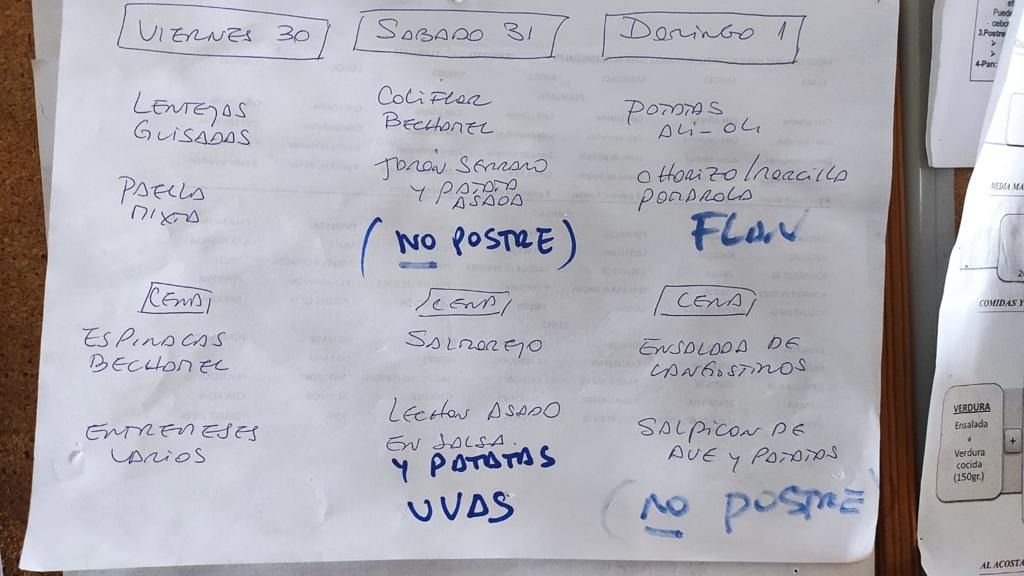 VIERNES 30
LENTEJAS
GUISADAS
PAELLA
MIXTA
CENA
ESPINACAS
BECHAMEL
ENTREMESES
VARIOS
SABADO 31
COLIFLOR
BECHAMEL
JAMÓN SERRANO
Y PATATA
ASADA
(NO POSTRE)
CENA
SALMOREJO
LECHON ASADO
EN SALSA.
Y PATATAS
UVAS
DOMINGO 1
PATATAS
ALI-OLI
CHORIZO/MORCILLA
POMAROLA
FLAN
CENA
ENSALADA DE
LANGOSTINOS
SALPICON DE
AVE Y PATATAS
(NO POSTRE
3.Postre
4-Pan:
MEDIA MA
COMIDAS Y
VERDURA
Ensalada
ó
Verdura
cocida
(150gr.)
+
AL ACOSTA